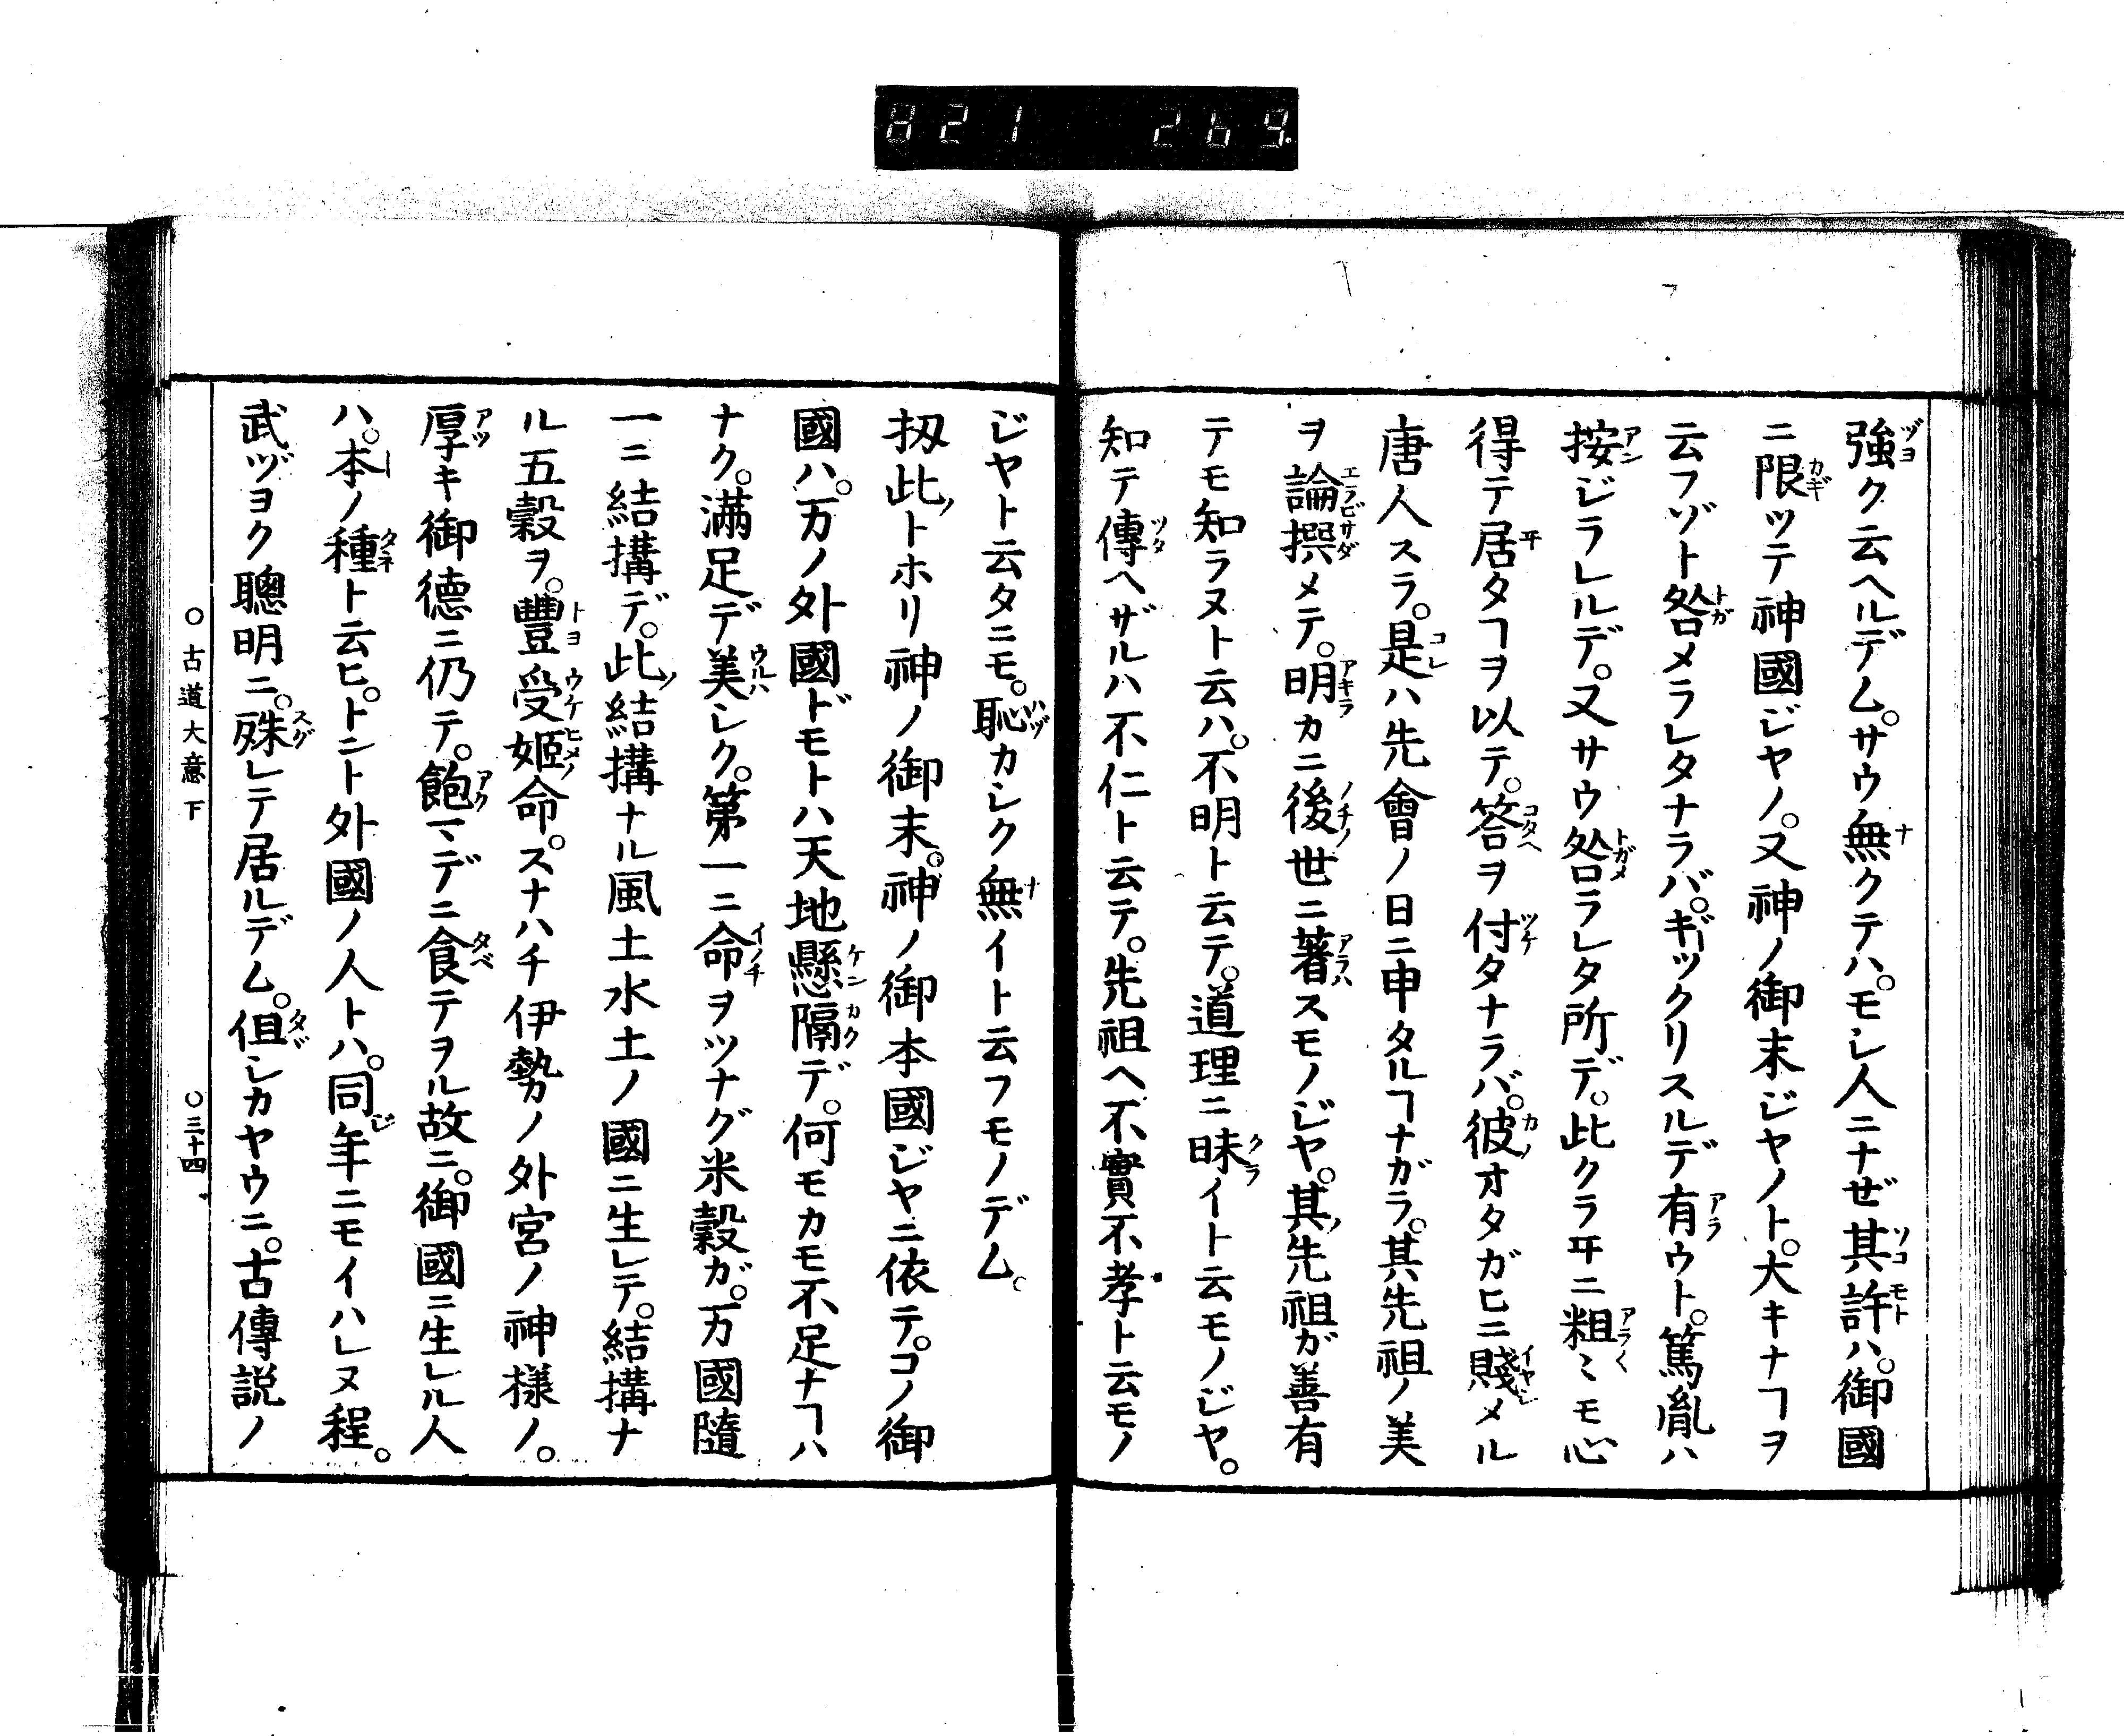 821 269.
強ク云ヘルデム。サウ無クテハ。モシ人ニナゼ其許ハ。御國
ニ限ツテ神國ジヤノ。又神ノ御末ジヤノト。大キナヿヲ
云フゾト咎メラレタナラバ。ギックリスルデ有ウト。篤胤ハ
按ジラレルデ。又サウ咎ラレタ所デ。此クラヰニ粗〻モ心
得テ居タヿヲ以テ。答ヲ付タナラバ。彼オタガヒニ賤メル
唐人スラ。是ハ先會ノ日ニ申タルヿナガラ。其先祖ノ美
ヲ論撰メテ。明カニ後世ニ著スモノジヤ。其先祖ガ善有
テモ知ラヌト云ハ。不明ト云テ。道理ニ昧イト云モノジヤ。
知テ傳ヘザルハ不仁ト云テ。先祖ヘ不實不孝ト云モノ
ジヤト云タニモ。恥カシク無イト云フモノデム。
扨此トホリ神ノ御末。神ノ御本國ジヤニ依テ。コノ御
國ハ。万ノ外國ドモトハ天地懸隔デ。何モカモ不足ナヿハ
ナク。滿足デ美シク。第一ニ命ヲツナグ米穀ガ。万國隨
一ニ結搆デ。此結搆ナル風土水土ノ國ニ生レテ。結搆ナ
ル五穀ヲ。豐受姬命。スナハチ伊勢ノ外宮ノ神様ノ。
厚キ御德ニ仍テ。飽マデニ食テヲル故ニ。御國ニ生レル人
ハ。本ノ種ト云ヒ。トント外國ノ人トハ。同年ニモイハレヌ程。
武ヅヨク聰明ニ。殊レテ居ルデム。但シカヤウニ。古傳説ノ
○古道大意下 ○三十四